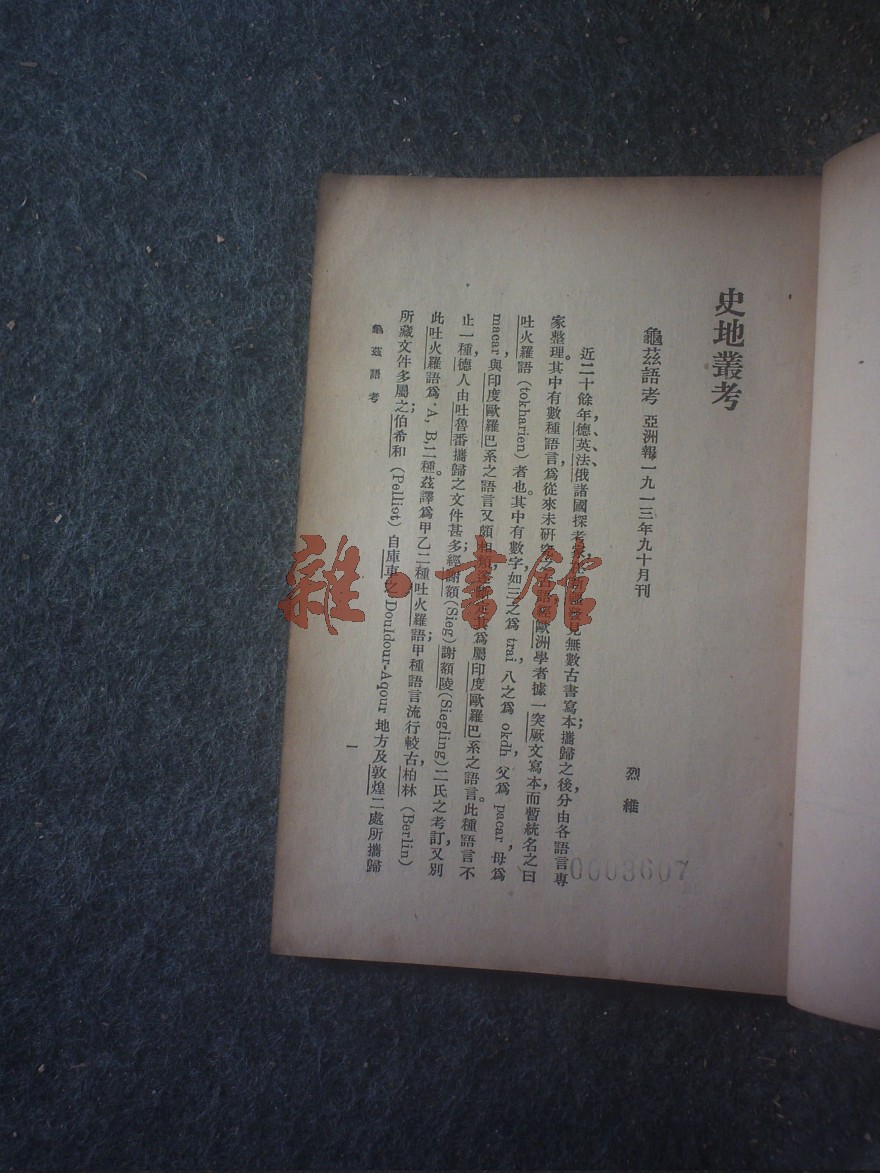 史地叢考
龜茲語考　亞洲報一九一三年九十月刊
烈維
近二十餘年，德、英、法、俄諸國探考家發見無數古書寫本；攜歸之後，分由各語言專
家整理。其中有數種語言，爲從來未研究者，歐洲學者據一突厥文寫本而暫統名之曰
吐火羅語（tokharien）者也。其中有數字，如三之爲 trai，八之爲 okdh，父爲 pacar，母爲
macar，與印度歐羅巴系之語言又頗相其爲屬印度歐羅巴系之語言。此種語言不
止一種，德人由吐魯番攜歸之文件甚多，經謝額(Sieg)謝額陵(Siegling)二氏之考訂，又別
此吐火羅語爲 A, B, 二種。茲譯爲甲乙二種吐火羅語；甲種語言流行較古，柏林（Berlin）
所藏文件多屬之；伯希和（Pelliot）自庫車之 Douldour-Aqour 地方及敦煌二處所攜歸
龜茲語考
一
0003607
雜·書館